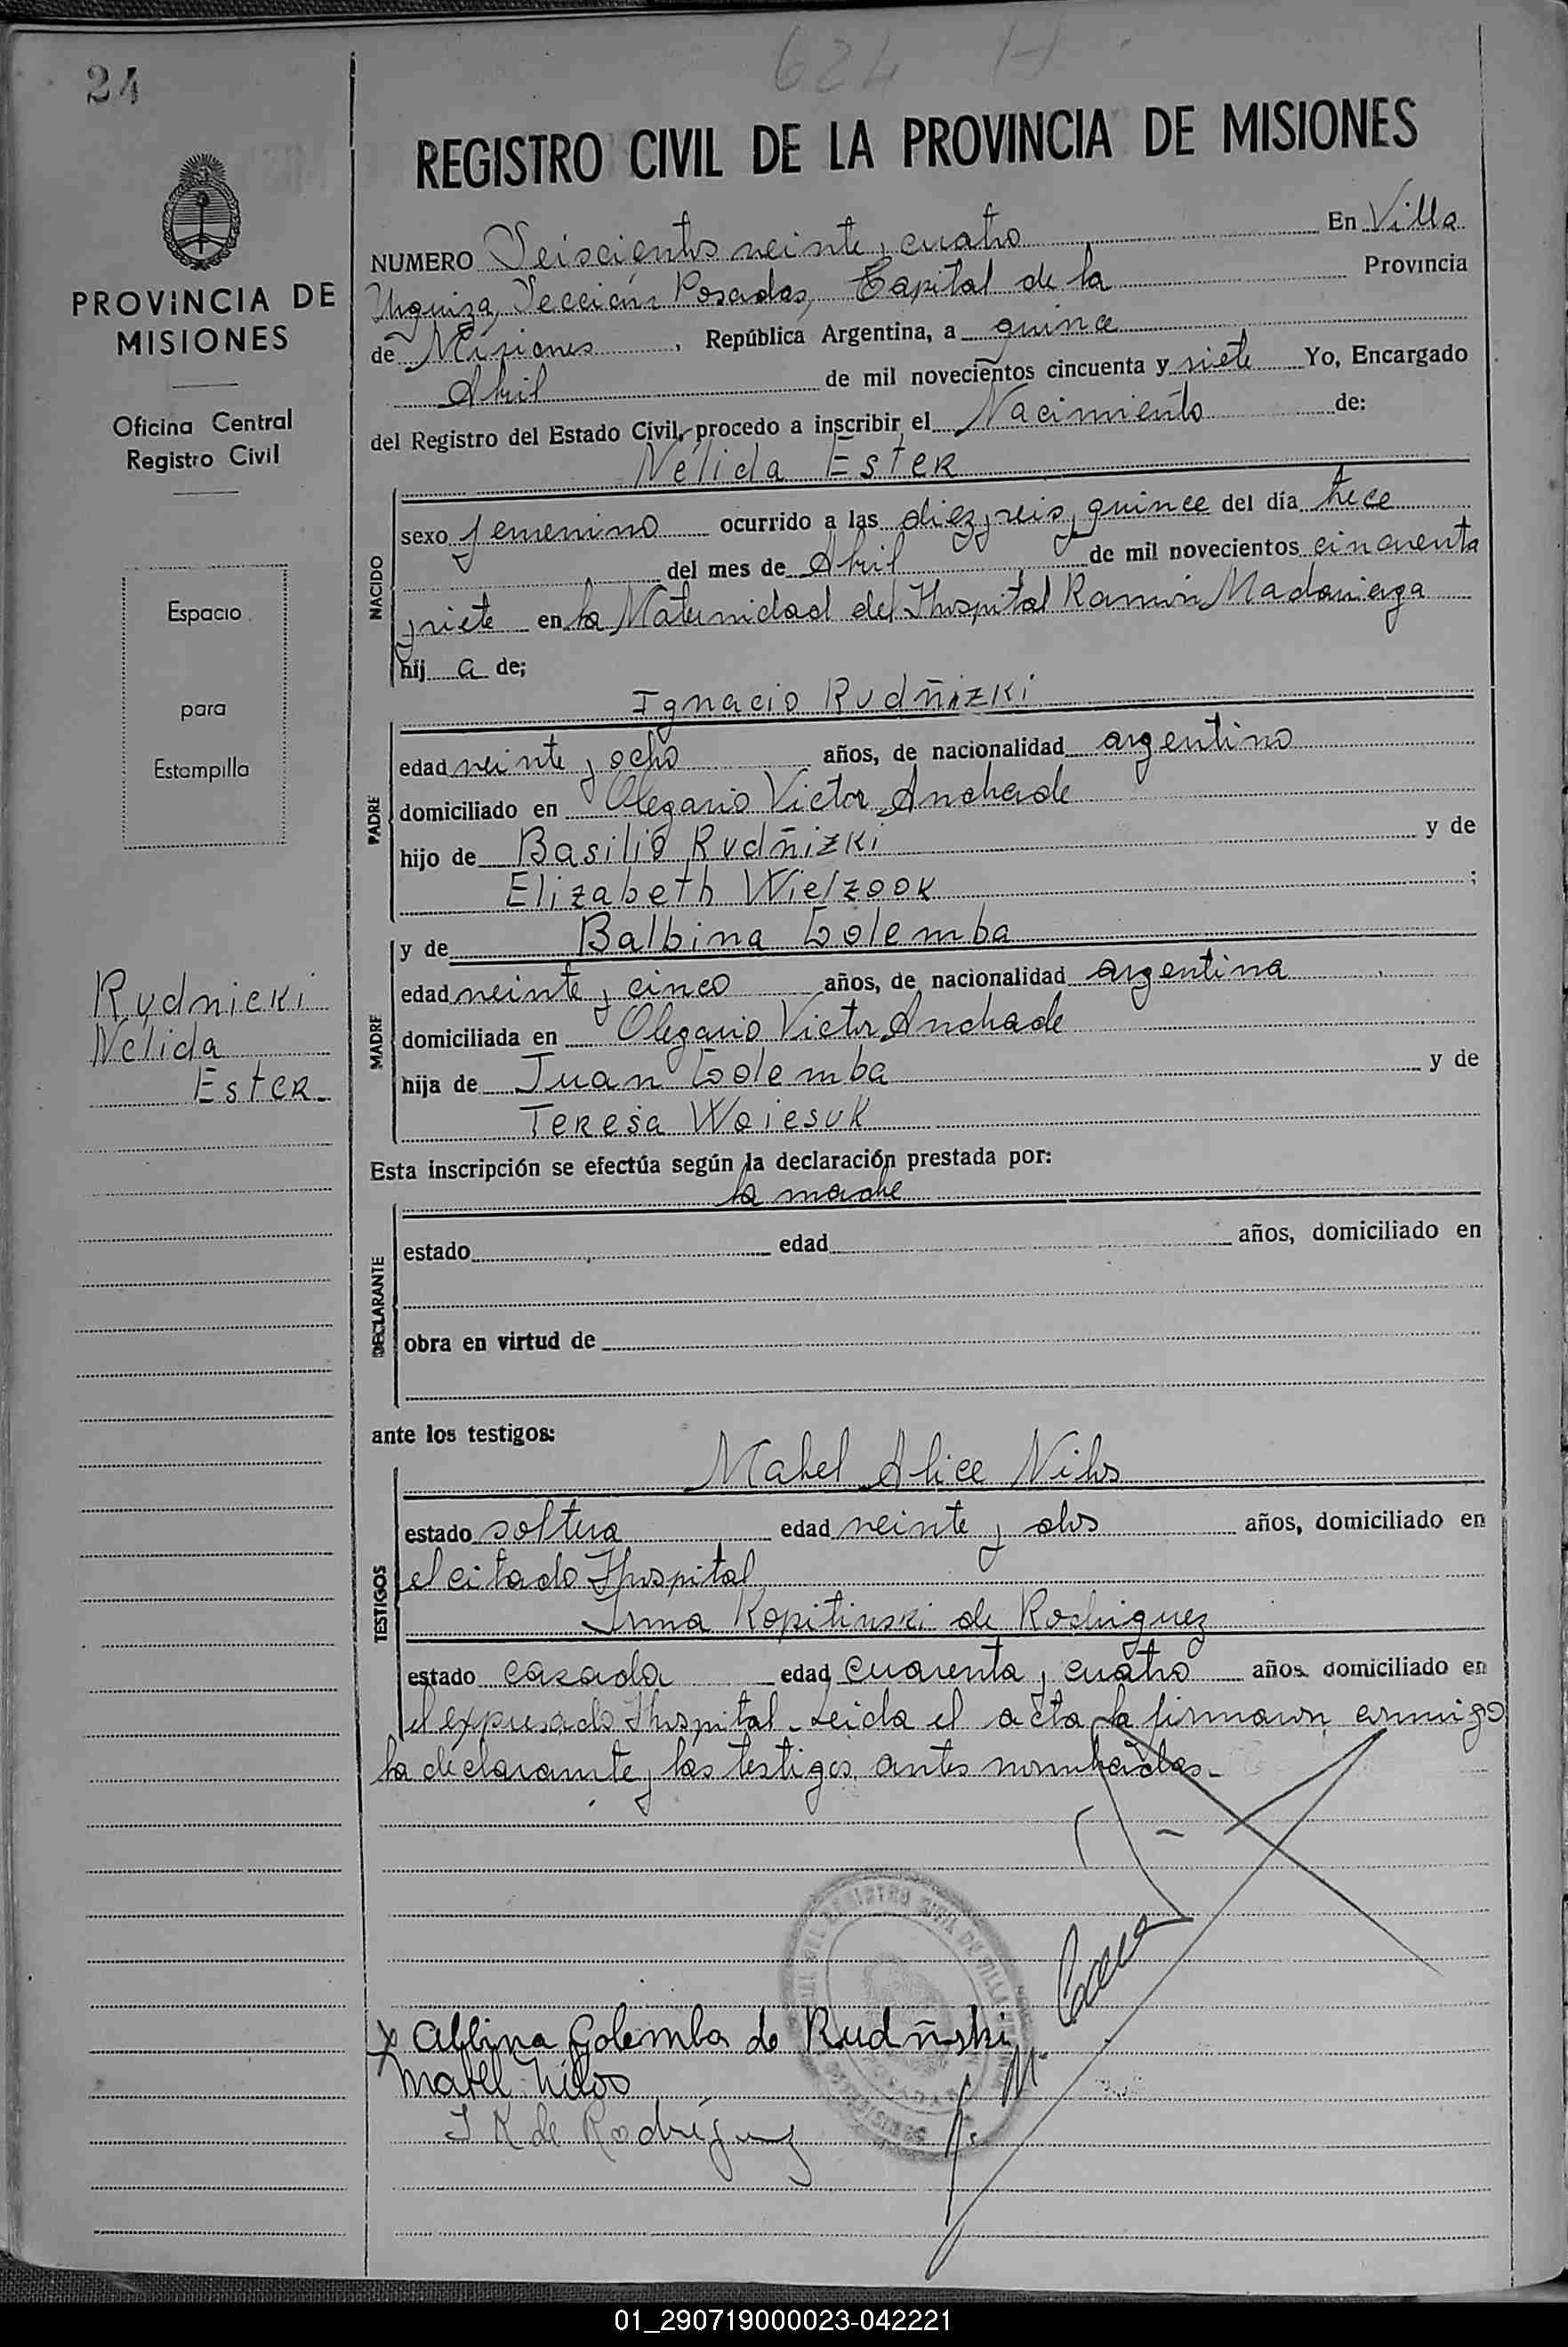 624 H
24
REGISTRO CIVIL DE LA PROVINCIA DE MISIONES
PROVINCIA DE
MISIONES
Oficina Central
Registro Civil
Espacio
para
Estampilla
Rydnicki
Nélida
Ester
NUMERO Seiscientos veinte y cuatro En Villa
Urquiza, Sección Posadas, Capital de la Provincia
de Misiones, República Argentina, a quince
Abril de mil novecientos cincuenta y siete Yo, Encargado
del Registro del Estado Civil, procedo a inscribir el Nacimiento de:
Nélida Ester
NACIDO
sexo femenino ocurrido a las diez y seis y quince del día trece
del mes de Abril de mil novecientos cincuenta
y siete en la Maternidad del Hospital Ramón Madariaga
hij a de;
Ignacio Rudñizki
PADRE
edad veinte y ocho años, de nacionalidad argentino
domiciliado en Olegario Victor Andrade
hijo de Basilio Rudñizki y de
Elizabeth Wielzook ;
y de Balbina Golemba
MADRE
edad veinte y cinco años, de nacionalidad argentina
domiciliada en Olegario Victor Andrade
hija de Juan Golemba y de
Teresa Woiesuk
Esta inscripción se efectúa según la declaración prestada por:
la madre
DECLARANTE
estado edad años, domiciliado en
obra en virtud de
ante los testigos:
Mabel Alice Nilos
TESTIGOS
estado soltera edad veinte y dos años, domiciliado en
el citado Hospital
Irma Kopitinski de Rodriguez
estado casada edad cuarenta y cuatro años domiciliado en
el expresado Hospital. Leida el acta la firmaron conmigo
la declarante y las testigos antes nombradas.-
x Albina Golemba de Rudñski
Mabel Nilos
I K de Rodríguez
01_290719000023-042221